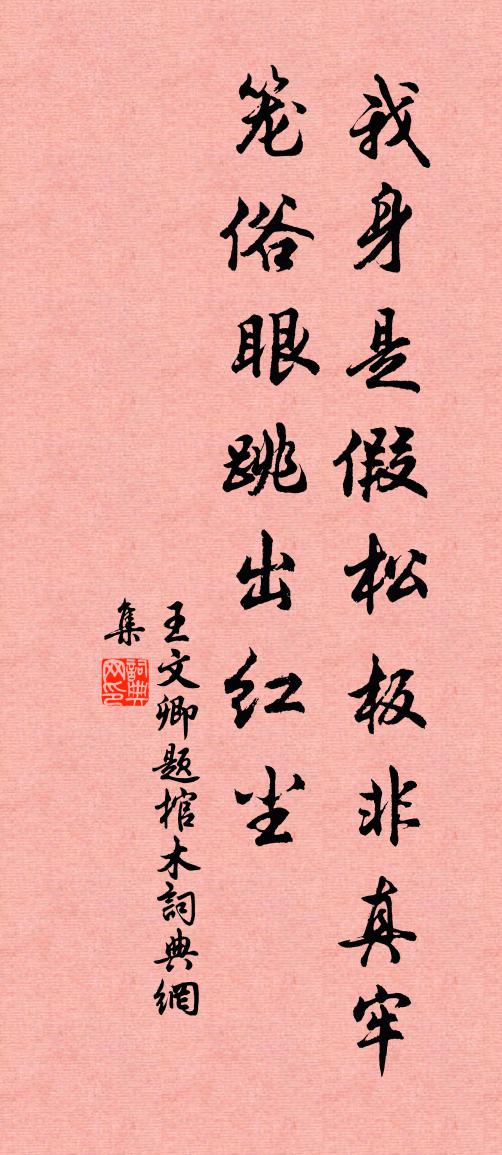 我身是假松板非真牢
笼俗眼跳出红尘
王文卿题棺木詞典網
集
詞典
网印